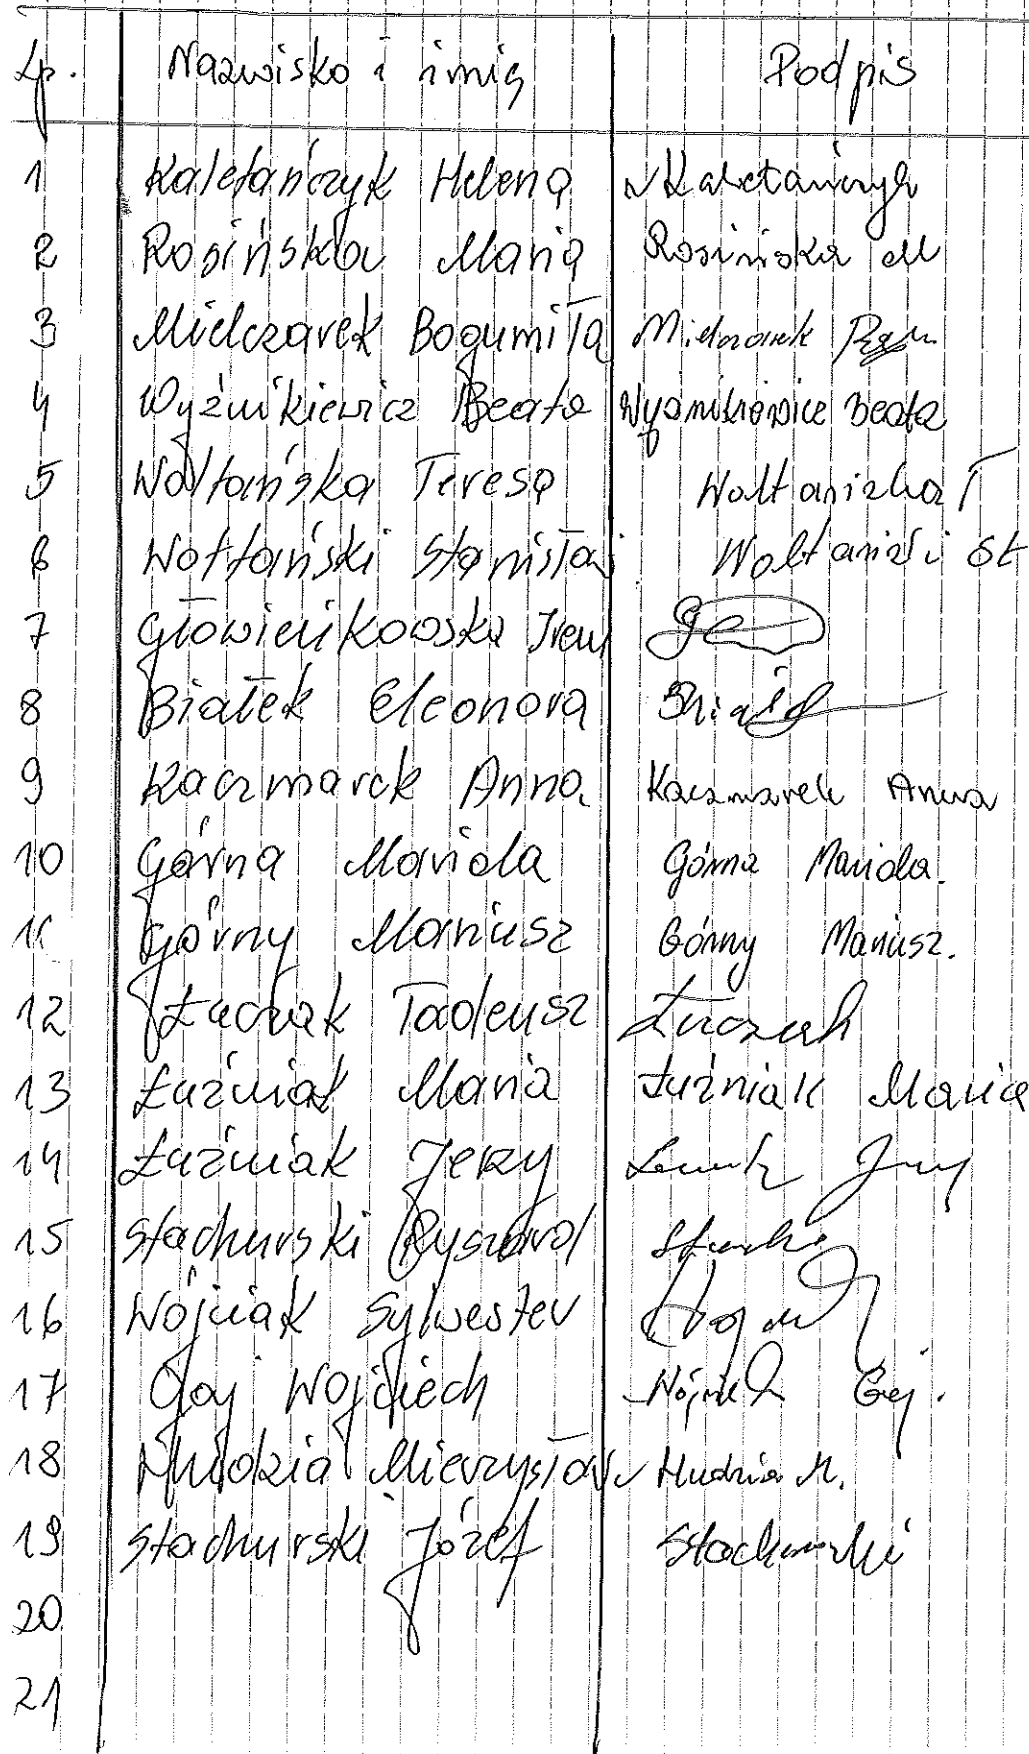 Lp. Nazwisko i imię Podpis
1 Kaletańczyk Helena Kaletańczyk
2 Rosińska Maria Rosińska M
3 Mielczarek Bogumiła Mielczarek
4 Wyźnikiewicz Beata Wyźnikiewicz Beata
5 Wołtańska Teresa Wołtańska T
6 Wołtański Stanisław Wołtański St
7 Głowienkowska Irena
8 Białek Eleonora
9 Kaczmarek Anna Kaczmarek Anna
10 Górna Mariola Górna Mariola.
11 Górny Mariusz Górny Mariusz.
12 Łuczak Tadeusz Łuczak
13 Łuźniak Maria Łuźniak Maria
14 Łuźniak Jerzy Jerzy
15 Stachurski Ryszard
16 Wójciak Sylwester
17 Goj Wojciech
18 Mieczysław M.
19 Stachurski Józef Stachurski
20
21